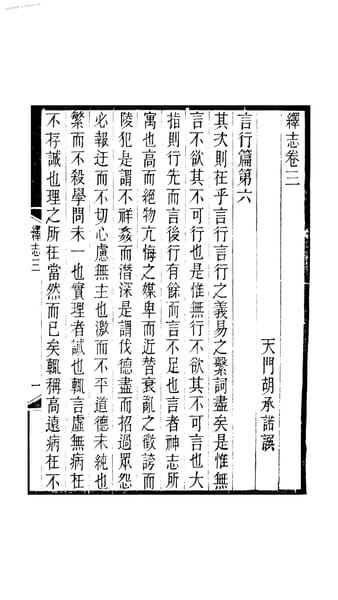 繹志卷三
天門胡承諾譔
言行篇第六
其次則在乎言行言行之義易之繫詞盡矣是惟無
言不欲其不可行也是惟無行不欲其不可言也大
指則行先而言後行有餘而言不足也言者神志所
寓也高而絕物亢悔之媒卑而近替衰亂之徵誇而
陵犯是謂不祥姦而潛深是謂伐德盡而招過眾怨
必報迂而不切心慮無主也激而不平道德未純也
繁而不殺學問未一也實理者誠也輒言虛無病在
不存誠也理之所在當然而已矣輒稱高遠病在不
繹志三
一